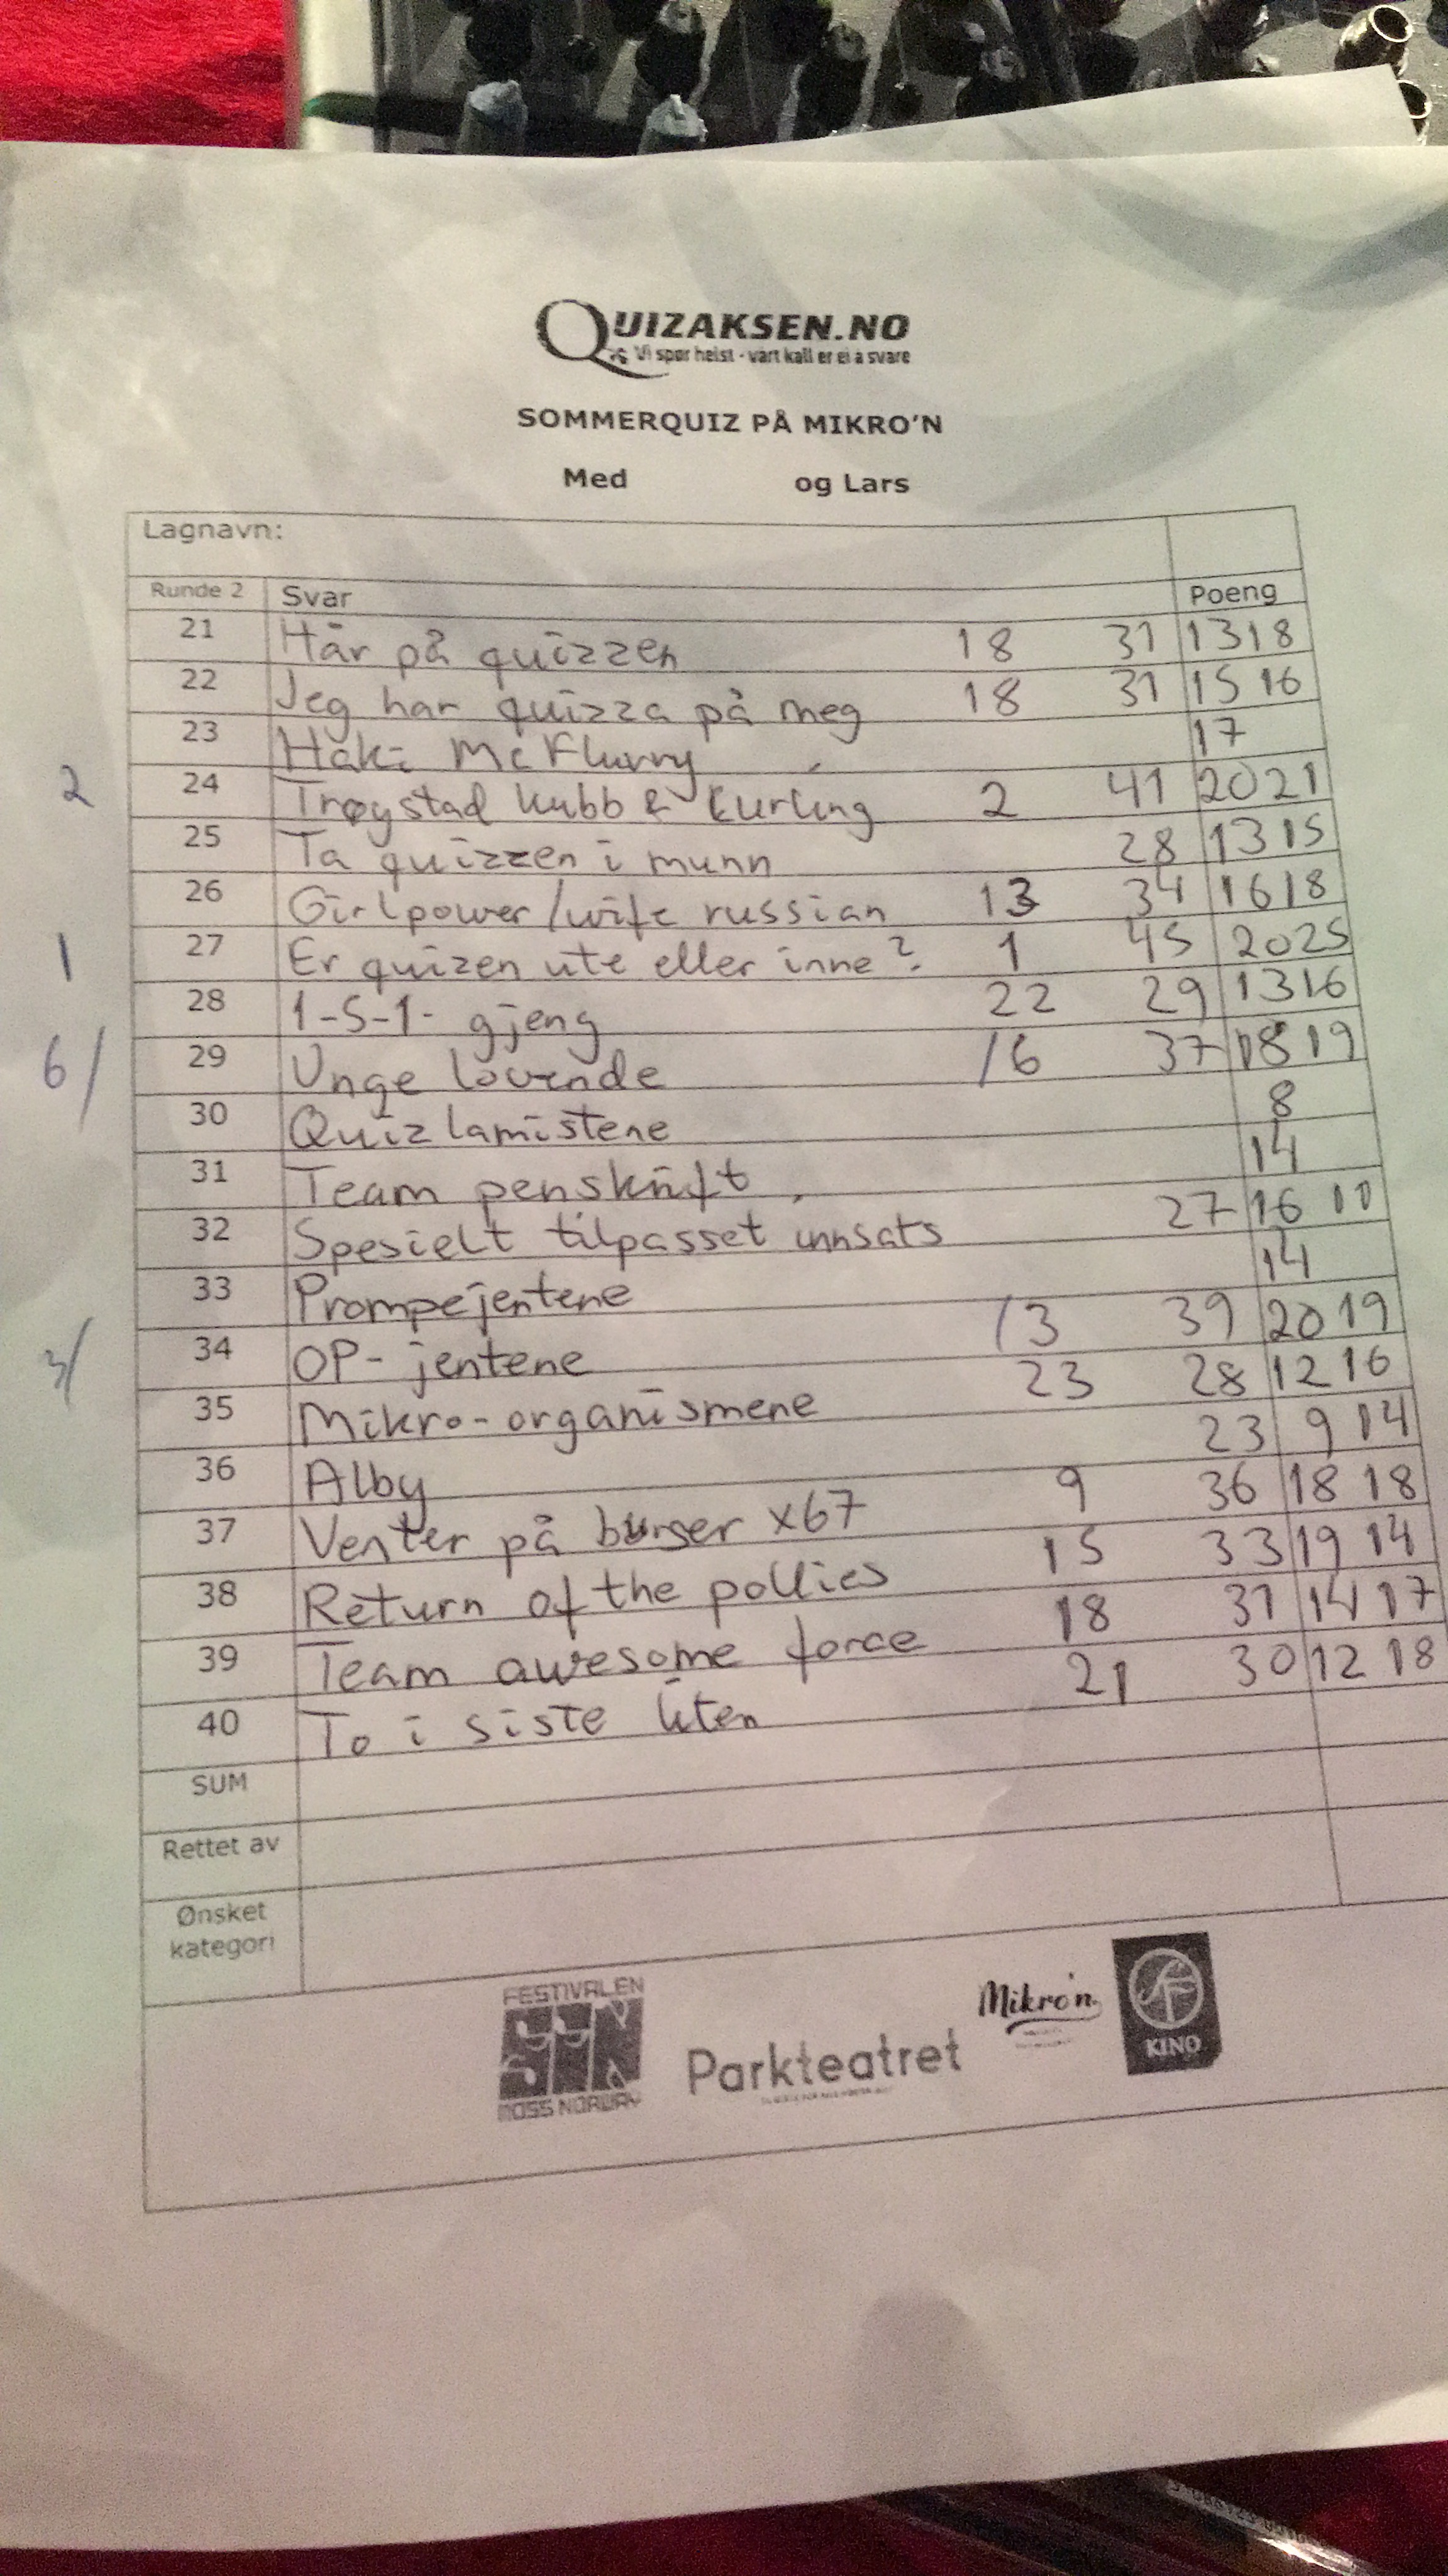 QUIZAKSEN.NO
Vi spør helst - vårt kall er ei å svare
SOMMERQUIZ PÅ MIKRO'N
Med og Lars
Lagnavn:
Runde 2 Svar Poeng
21 Hår på quizzen 18 31 13 18
22 Jeg har quizza på meg 18 31 15 16
23 Haki McFlurry 17
2 24 Trøgstad kubb & kurling 2 41 20 21
25 Ta quizzen i munn 28 13 15
26 Girlpower/wife russian 13 34 16 18
1 27 Er quizen ute eller inne? 1 45 20 25
28 1-5-1- gjeng 22 29 13 16
6/ 29 Unge lovende /6 37 18 19
30 Quizlamistene 8
31 Team penskrift 14
32 Spesielt tilpasset innsats 27 16 11
33 Prompejentene 14
3/ 34 OP-jentene /3 39 20 19
35 Mikro-organismene 23 28 12 16
36 Alby 23 9 14
37 Venter på burger x67 9 36 18 18
38 Return of the pollies 15 33 19 14
39 Team awesome force 18 31 14 17
40 To i siste liten 21 30 12 18
SUM
Rettet av
Ønsket
kategori
FESTIVALEN
MOSS NORWAY
Parkteatret
Mikro'n
KINO